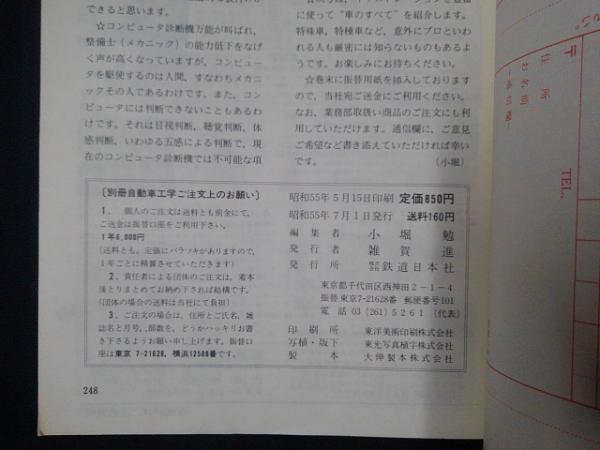 できると思います。
☆コンピュータ診断機万能が叫ばれ、
整備士（メカニック）の能力低下をなげ
く声が高くなっていますが、コンピュー
タを駆使するのは人間、すなわちメカニ
ックその人であるわけです。また、コン
ピュータには判断できないこともあるわ
けです。それは目視判断、聴覚判断、体
感判断、いわゆる五感による判断で、現
在のコンピュータ診断機では不可能な項
に使って“車のすべて”を紹介します。
特殊車、特種車など、意外にプロといわ
れる人も厳密には知らないものもあるよ
うです。お楽しみにお待ちください。
☆巻末に振替用紙を挿入しております
ので、当社宛ご送金にご利用ください。
なお、業務部取扱い商品のご注文にも利
用していただけます。通信欄に、ご意見
ご希望など書き添えていただければ幸い
です。 （小堀）
〔別冊自動車工学ご注文上のお願い〕
1． 個人のご注文は送料とも前金にて、
ご送金は振替口座をご利用下さい。
1年6,000円
（送料とも。定価にバラツキがありますので、
1年ごとに精算させていただきます）
2．責任者による団体のご注文は、着本
後とりまとめてお納め下されば結構です。
（団体の場合の送料は当社にて負担）
3．ご注文の場合は、住所とご氏名、雑
誌名と月号、部数を、どうかハッキリお書
き下さるようお願い申し上げます。振替口
座は東京 7-21628、横浜12588番です。
昭和55年5月15日印刷 定価850円
昭和55年7月1日発行 送料160円
編集者 小堀勉
発行者 雑賀進
発行所 株式会社 鉄道日本社
東京都千代田区西神田2－1－4
振替東京7-21628番 郵便番号101
電話 03（261）5261（代表）
印刷所 東洋美術印刷株式会社
写植・版下 東光写真植字株式会社
製本 大伸製本株式会社
248
〒
住所
お名前
TEL.